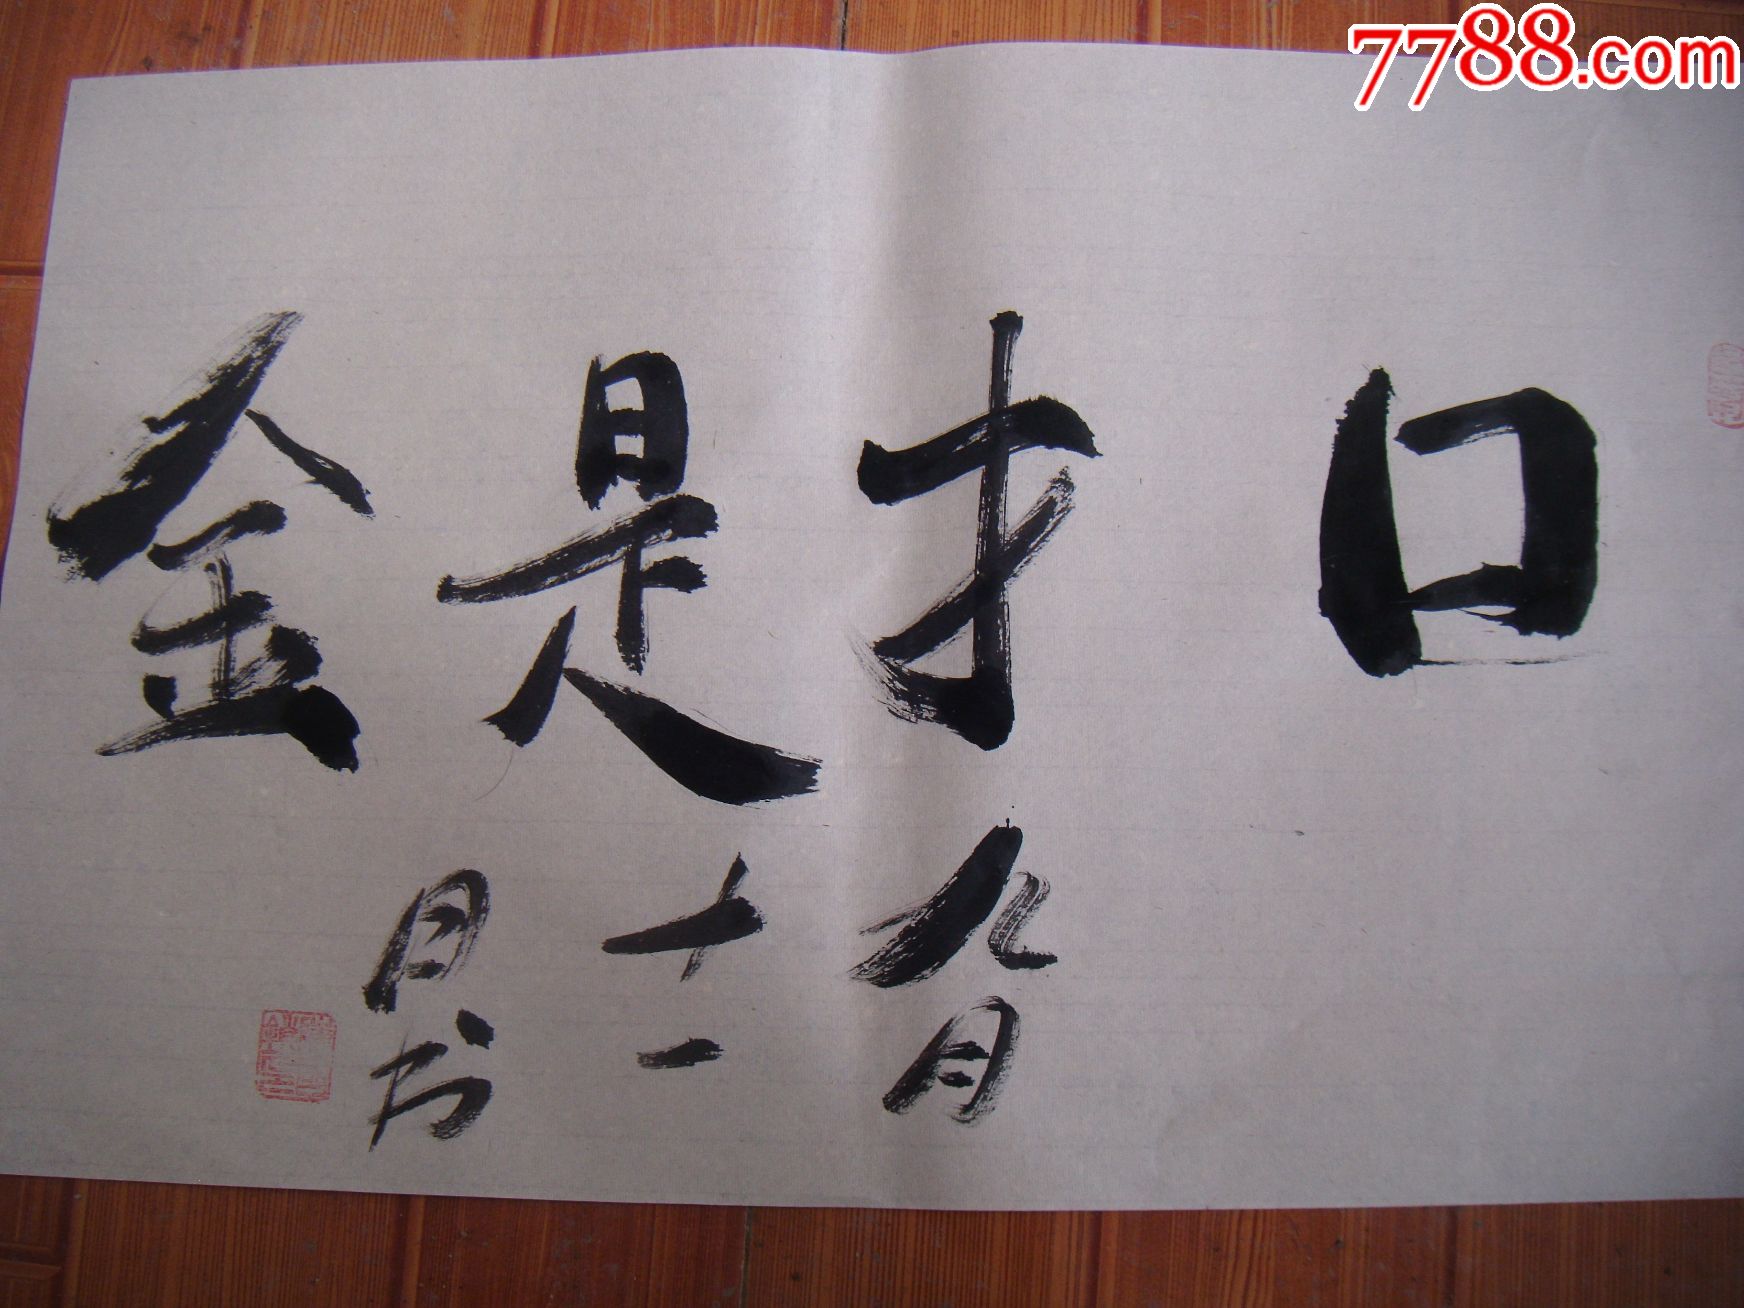 7788.com
口才是金
八月
十一
月书